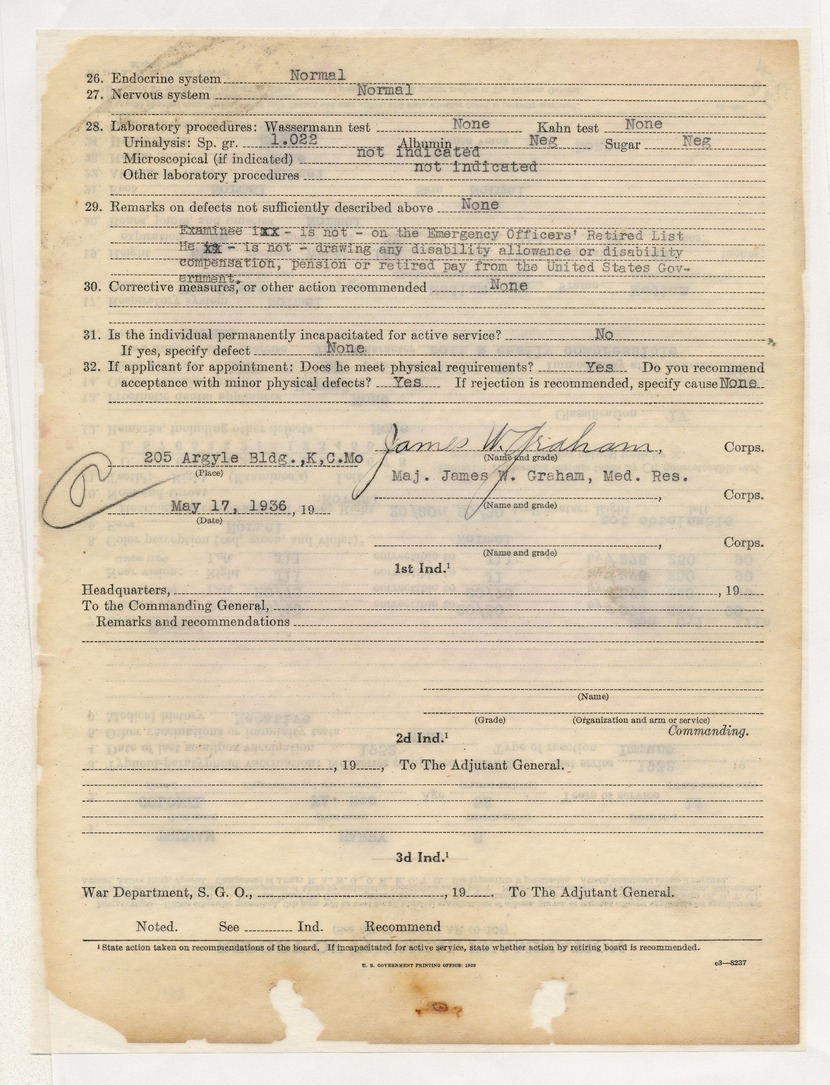 26. Endocrine system Normal
27. Nervous system Normal
28. Laboratory procedures: Wassermann test None Kahn test None
Urinalysis: Sp. gr. 1.022 Albumin Neg Sugar Neg
Microscopical (if indicated) not indicated
Other laboratory procedures not indicated
29. Remarks on defects not sufficiently described above None
Examinee ixx - is not - on the Emergency Officers' Retired List
He xx - is not - drawing any disability allowance or disability
compensation, pension or retired pay from the United States Gov-
ernment.
30. Corrective measures, or other action recommended None
31. Is the individual permanently incapacitated for active service? No
If yes, specify defect None
32. If applicant for appointment: Does he meet physical requirements? Yes Do you recommend
acceptance with minor physical defects? Yes If rejection is recommended, specify cause None
James W. Graham, Corps.
205 Argyle Bldg.,K,C.Mo (Name and grade)
(Place) Maj. James W. Graham, Med. Res.
, Corps.
May 17, 1936, 19 (Name and grade)
(Date)
, Corps.
(Name and grade)
1st Ind.¹
Headquarters, , 19
To the Commanding General,
Remarks and recommendations
(Name)
(Grade) (Organization and arm or service)
Commanding.
2d Ind.¹
, 19 , To The Adjutant General.
3d Ind.¹
War Department, S. G. O., , 19 To The Adjutant General.
Noted. See Ind. Recommend
¹ State action taken on recommendations of the board. If incapacitated for active service, state whether action by retiring board is recommended.
U. S. GOVERNMENT PRINTING OFFICE: 1929 c3—8237